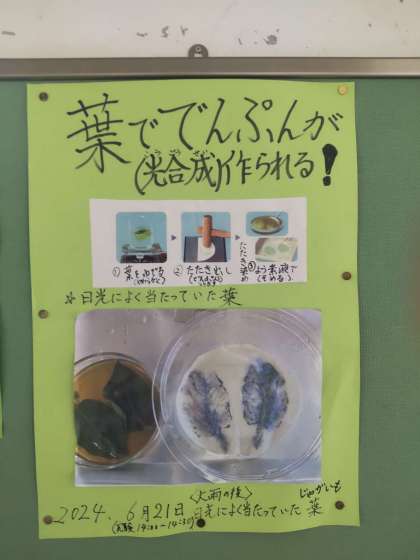 葉ででんぷんが
(光合成)作られる!
① 葉をゆでる
② たたき出し
③ よう素液で
(そめる)
たたき染め
☆日光によく当たっていた葉
<大雨の後>
じゃがいも
2024. 6月21日 日光によく当たっていた葉
(実験 14:00~14:30)